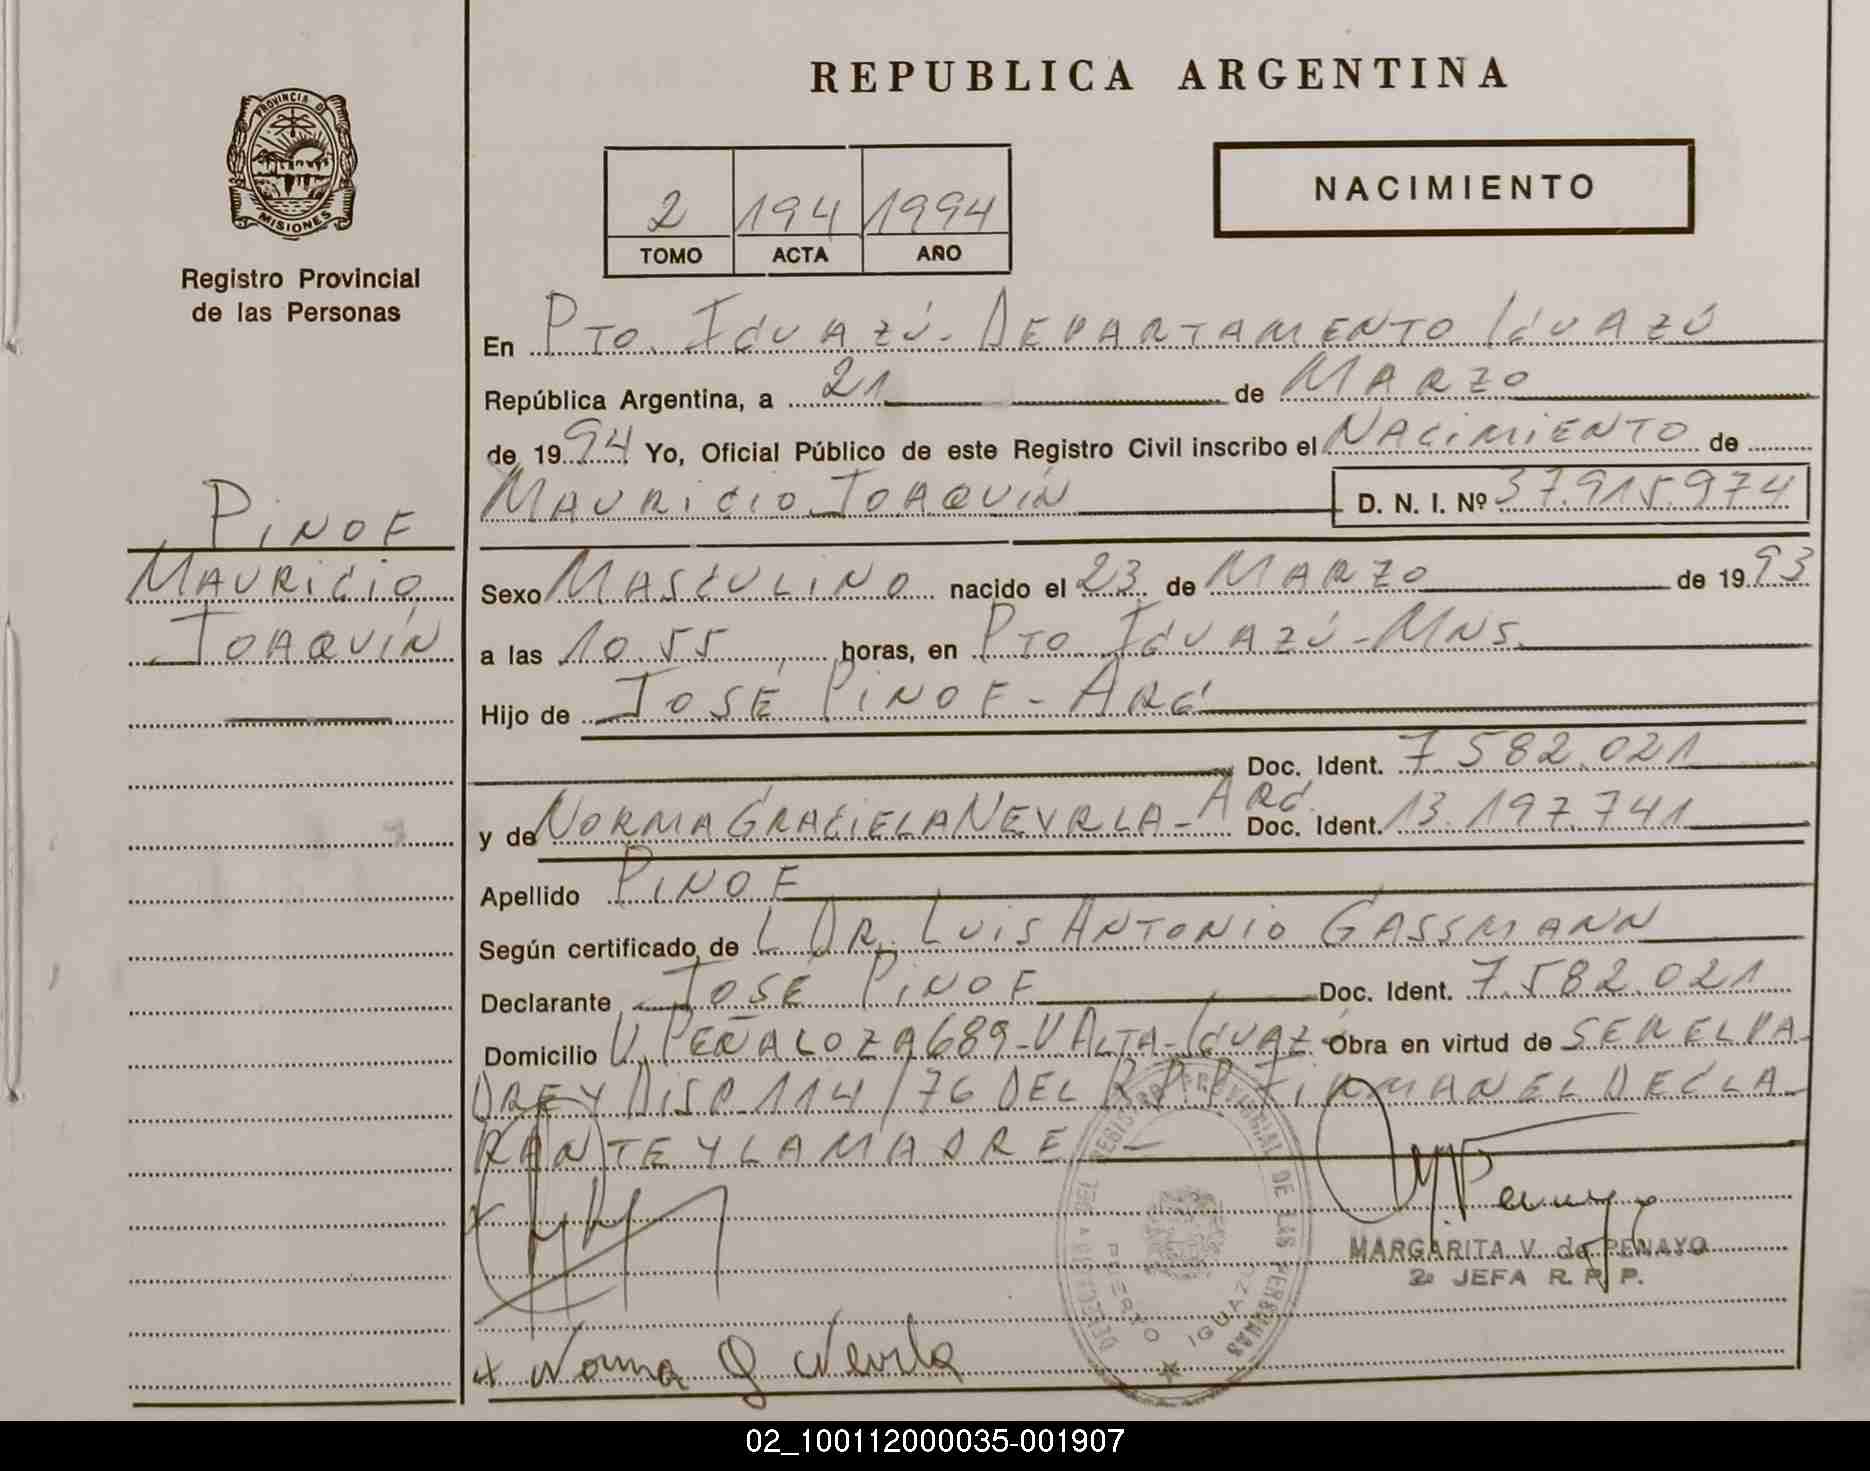 REPUBLICA ARGENTINA
PROVINCIA DE
MISIONES
Registro Provincial
de las Personas
2 194 1994
TOMO ACTA AÑO
NACIMIENTO
En PTO. IGUAZÚ - DEPARTAMENTO IGUAZÚ
República Argentina, a 21 de MARZO
de 1994 Yo, Oficial Público de este Registro Civil inscribo el NACIMIENTO de
MAURICIO JOAQUÍN D. N. I. Nº 37.915.974
PINOF
MAURICIO
JOAQUÍN
Sexo MASCULINO nacido el 23 de MARZO de 1993
a las 10.55 horas, en PTO. IGUAZÚ - MNS.
Hijo de JOSÉ PINOF - ARG.
Doc. Ident. 7.582.021
y de NORMA GRACIELA NEVRLA - ARG. Doc. Ident. 13.197.741
Apellido PINOF
Según certificado de L DR. LUIS ANTONIO GASSMANN
Declarante JOSÉ PINOF Doc. Ident. 7.582.021
Domicilio V. PEÑALOZA 689 - V. ALTA - IGUAZ. Obra en virtud de SER EL PA-
DRE Y DISP. 114/76 DEL R.P.P. FIRMAN EL DECLA-
RANTE Y LA MADRE. -
REGISTRO PROVINCIAL DE LAS PERSONAS
PUERTO IGUAZU
MARGARITA V. de PENAYO
2º JEFA R. P. P.
x Norma G Nevrla
02_100112000035-001907